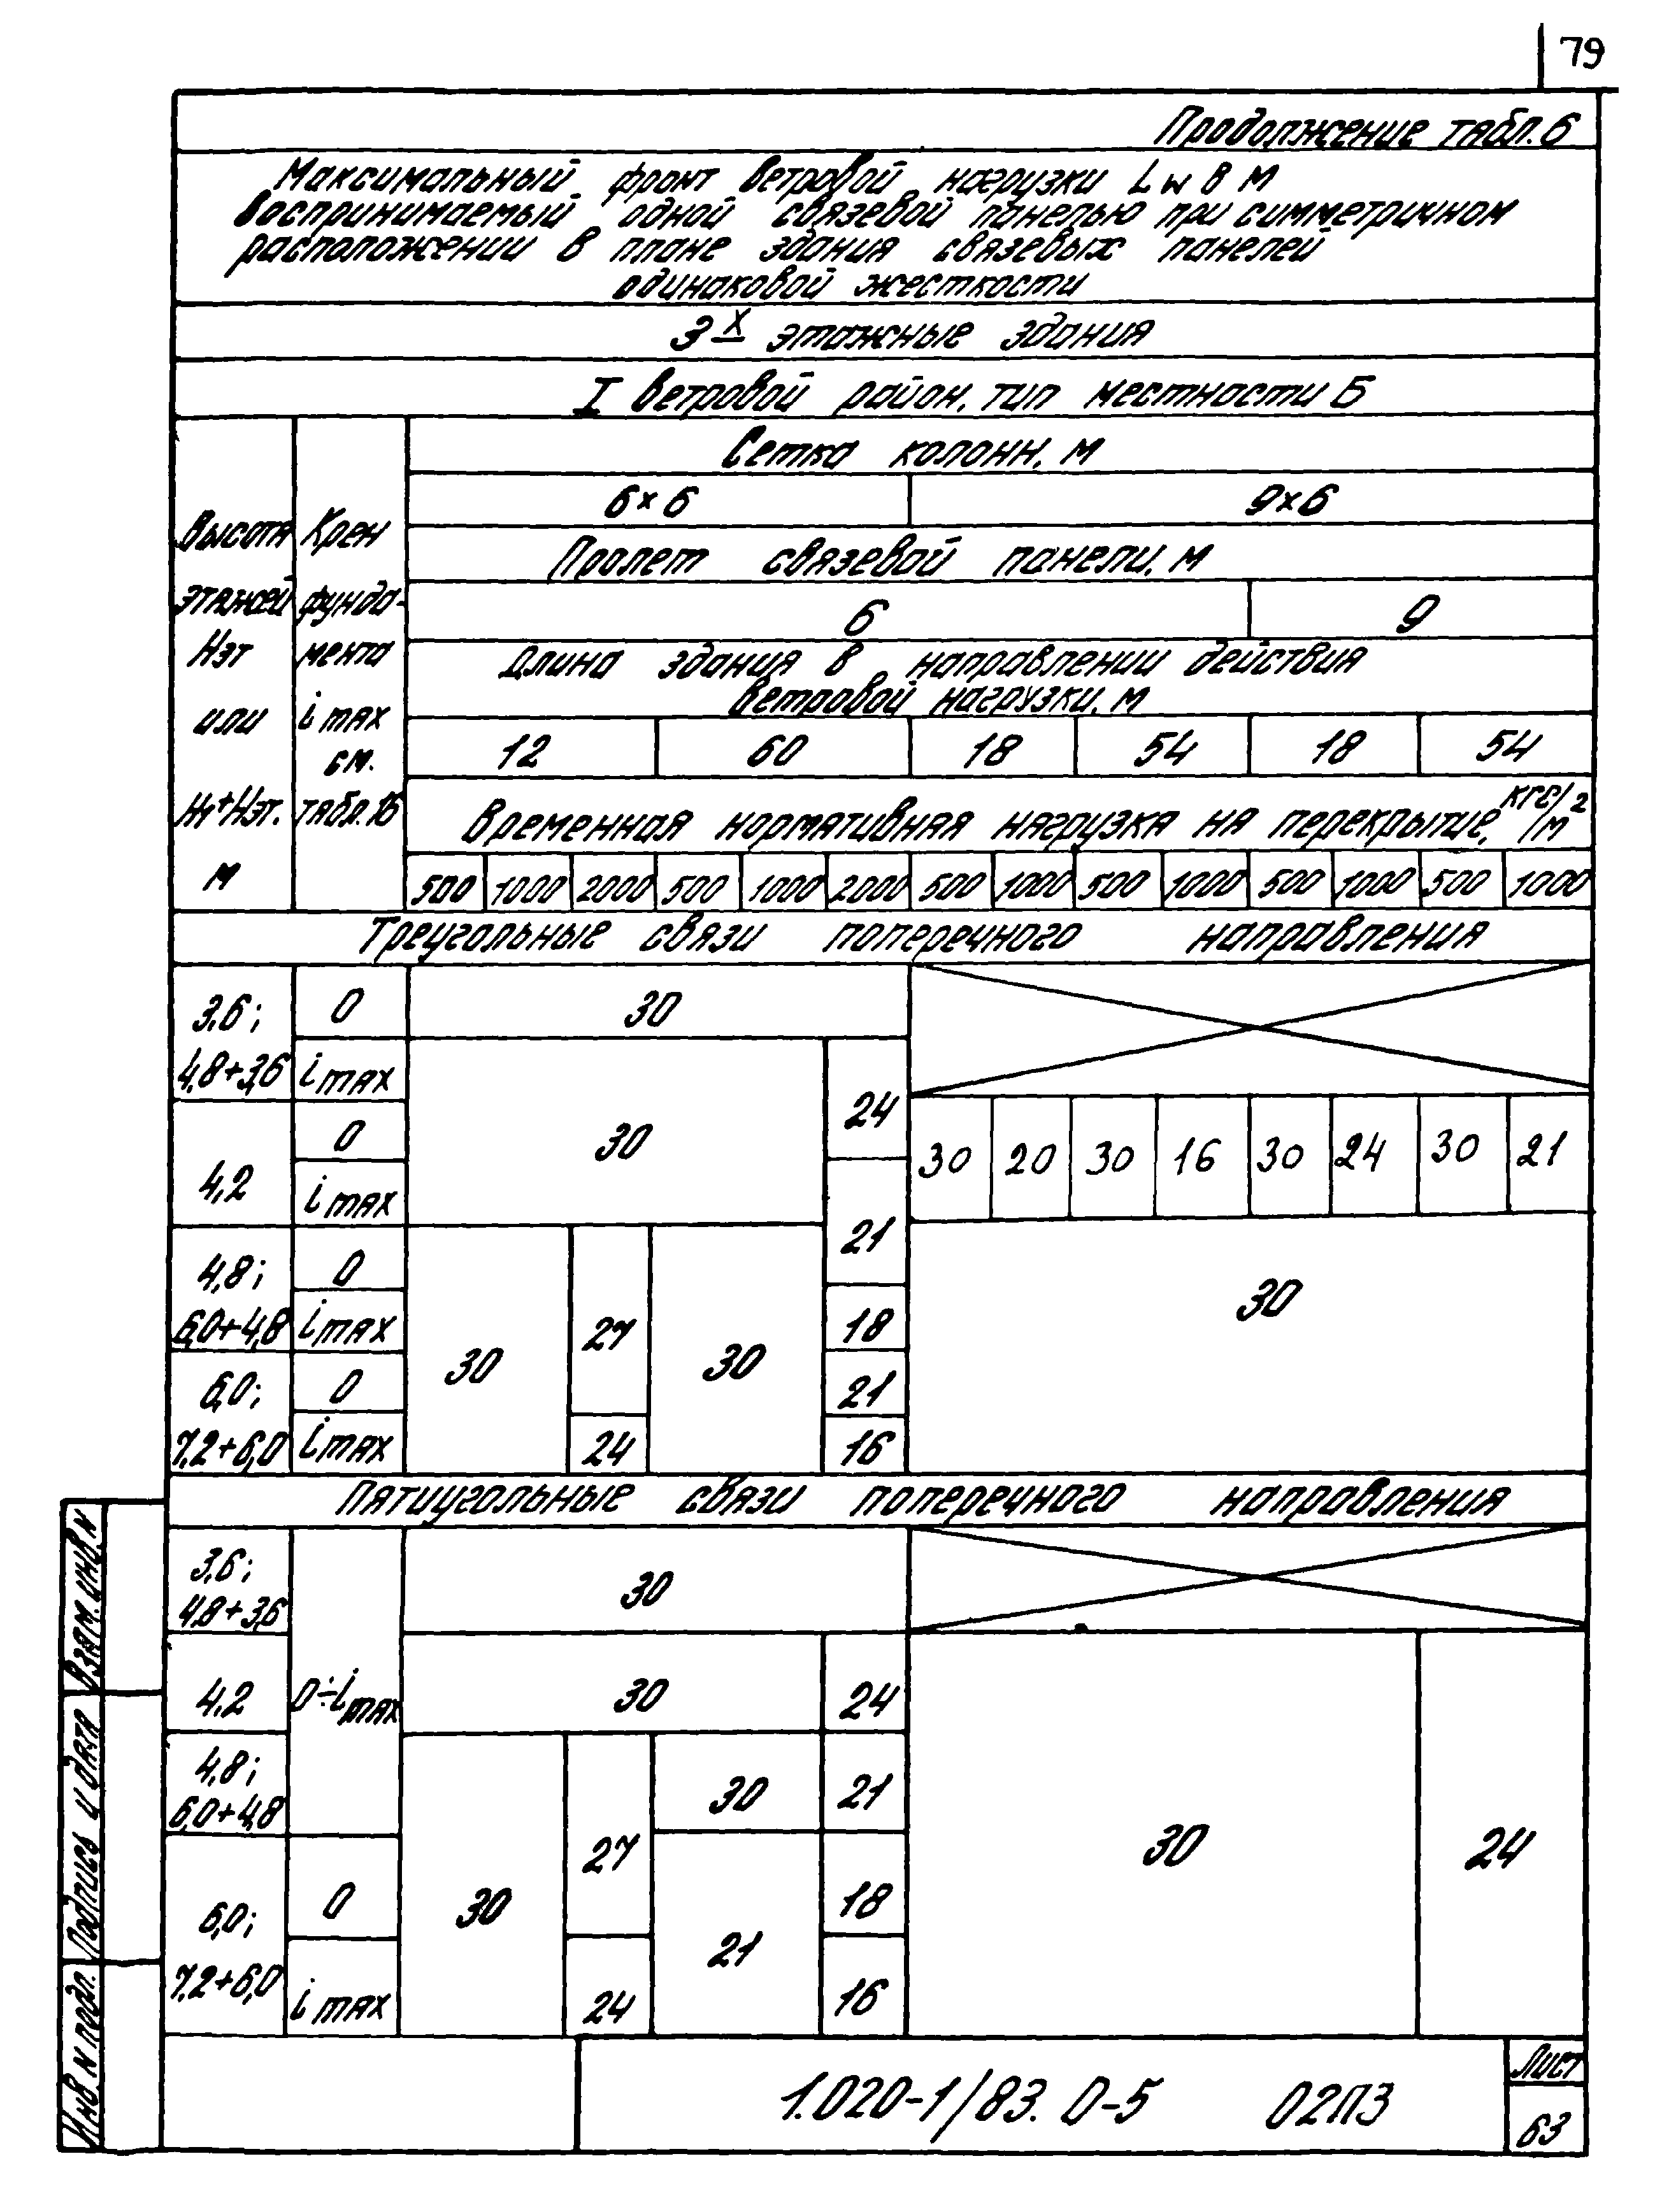 79
Продолжение табл. 6
Максимальный фронт ветровой нагрузки Lw в м
воспринимаемый одной связевой панелью при симметричном
расположении в плане здания связевых панелей
одинаковой жесткости
3х этажные здания
I ветровой район, тип местности Б
Высота этажей Нэт или Н1+Нэт. м
Крен фунда- мента i max см. табл. 16
Сетка колонн, м
6×6 9×6
Пролет связевой панели, м
6 9
Длина здания в направлении действия
ветровой нагрузки, м
12 60 18 54 18 54
Временная нормативная нагрузка на перекрытие, кгс/м2
500 1000 2000 500 1000 2000 500 1000 500 1000 500 1000 500 1000
Треугольные связи поперечного направления
3,6; 0 30
4,8+3,6 i max 30 24
4,2 0 30 20 30 16 30 24 30 21
i max 21
4,8; 0 30 27 30 30
6,0+4,8 i max 18
6,0; 0 21
7,2+6,0 i max 24 16
Пятиугольные связи поперечного направления
3,6; 30
4,8+3,6
4,2 0÷i max 30 24 30 24
4,8; 30 27 30 21
6,0+4,8
6,0; 0 21 18
7,2+6,0 i max 24 16
Взам. инв. N
Подпись и дата
Инв N подл.
1.020-1/83. 0-5 02ПЗ
Лист
63